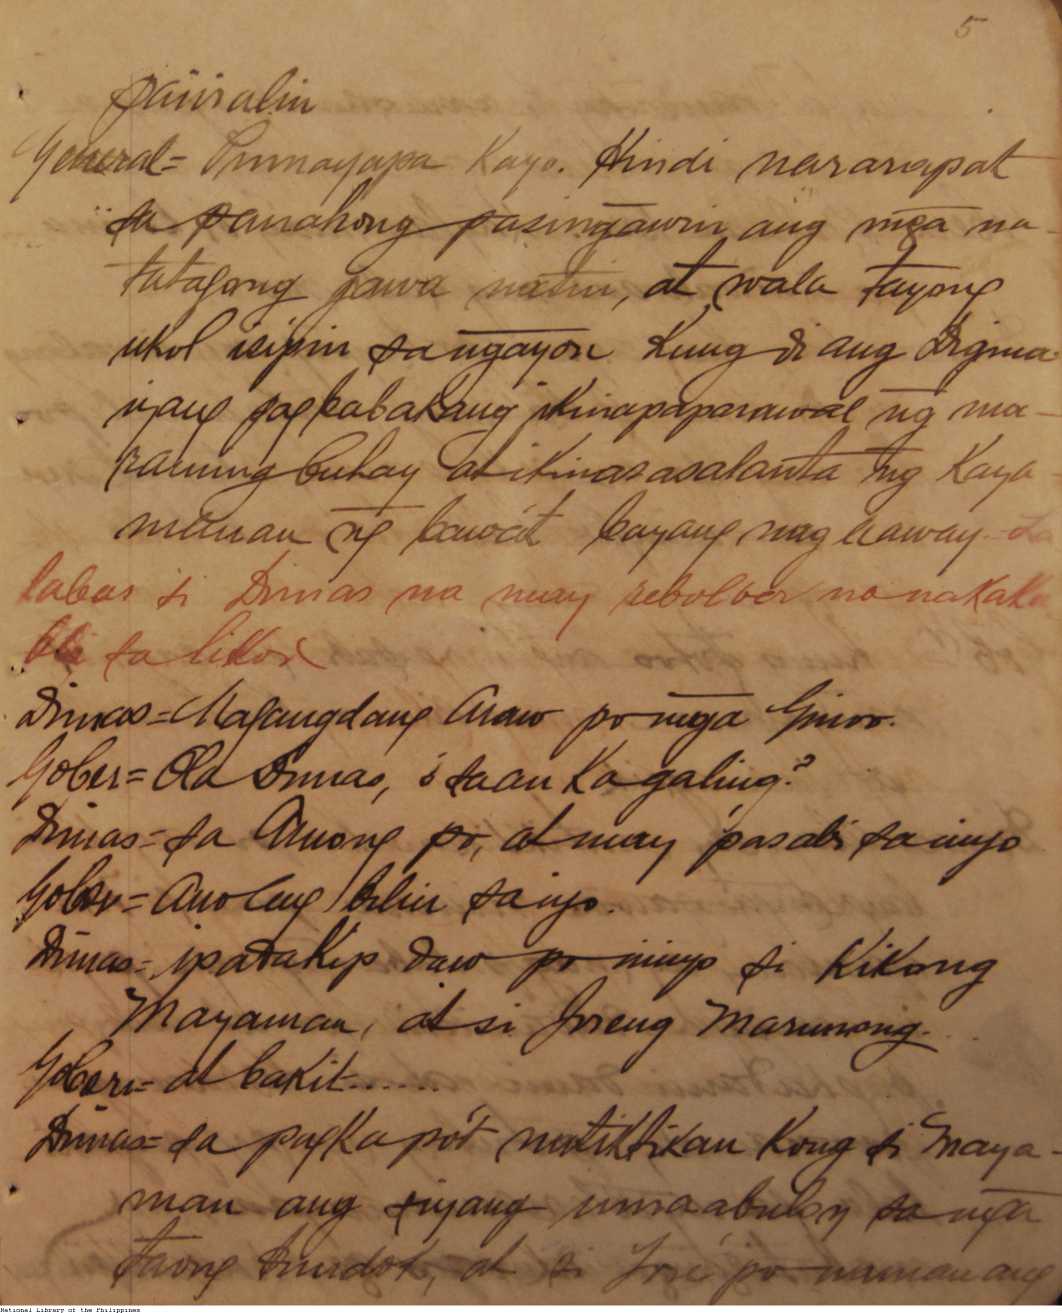 5
pairalin
General= Pumayapa Kayo. Hindi nararapat
sa panahong pasingawin ang mga na-
tatagong gawa natin, at wala tayong
ukol isipin sa ngayon Kung di ang Digma
ijang pagbabakang ikinapaparawal ng ma-
raming buhay at ikinasasalanta ng Kaya-
manan ng bawat bayang nag aaway-La
labas si Dimas na may rebolber na nakaka
bla sa likod
Dimas= Magangdang Araw po mga Ginoo.
Gober= Ola Dimas, ó saan Ka galing?
Dimas= sa po, at may pasabi sa inyo
Gober= Ano ang bilin sa iyo.
Dimas= ipadakip daw po ninyo si Kikong
Mayaman, at si Joseng Marunong.
Gober= at bakit.......
Dimas= sa pagka po't natiktikan Kong si Maya-
man ang siyang umaabuloy sa mga
taong bundok, at si José po naman ang
National Library of the Philippines